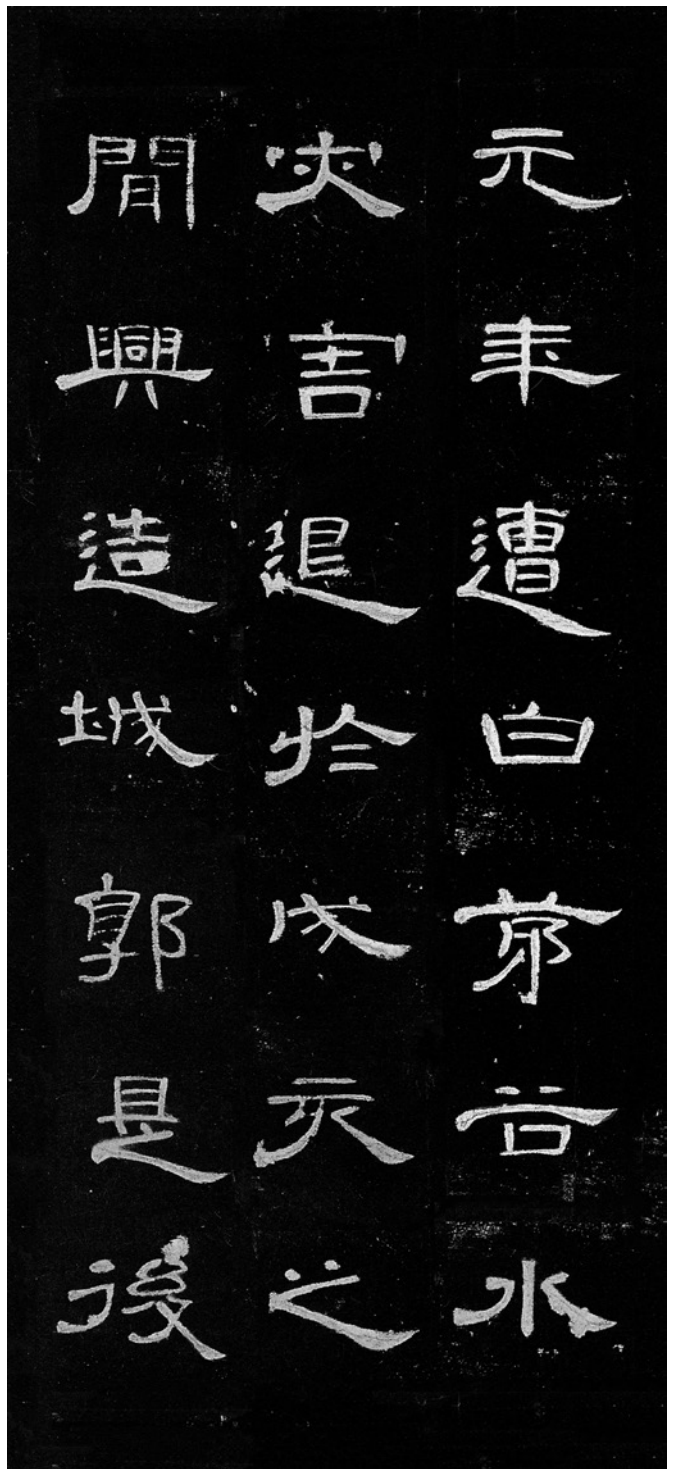 元年遭白茅谷水
灾害退於戌亥之
間興造城郭是後